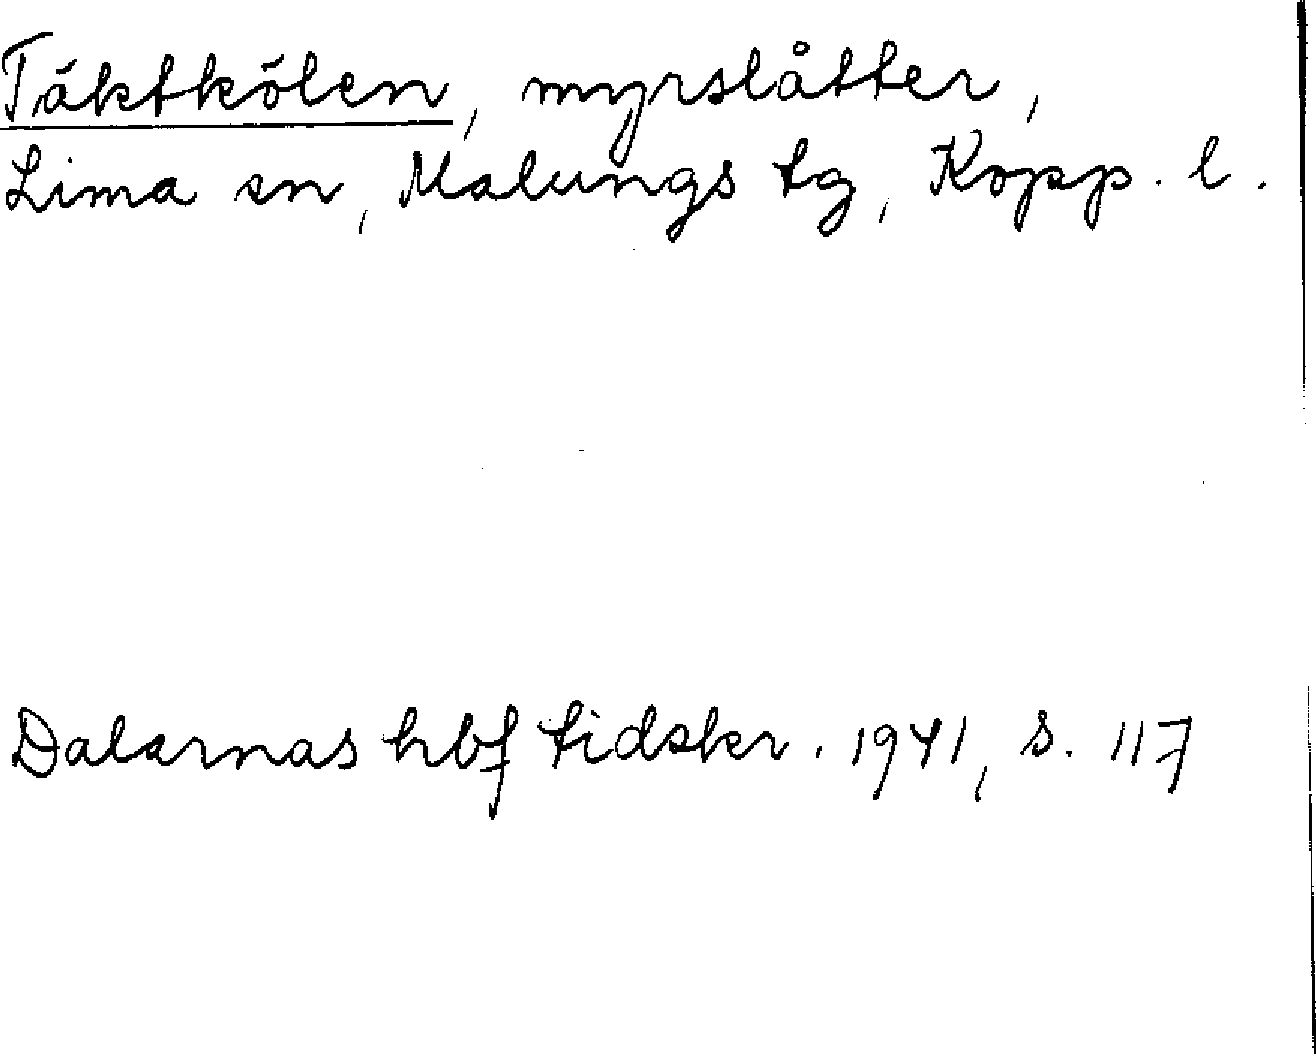 Täktkölen, myrslåtter,
Lima sn, Malungs tg, Kopp. l.
Dalarnas hbf tidskr. 1941, s. 117